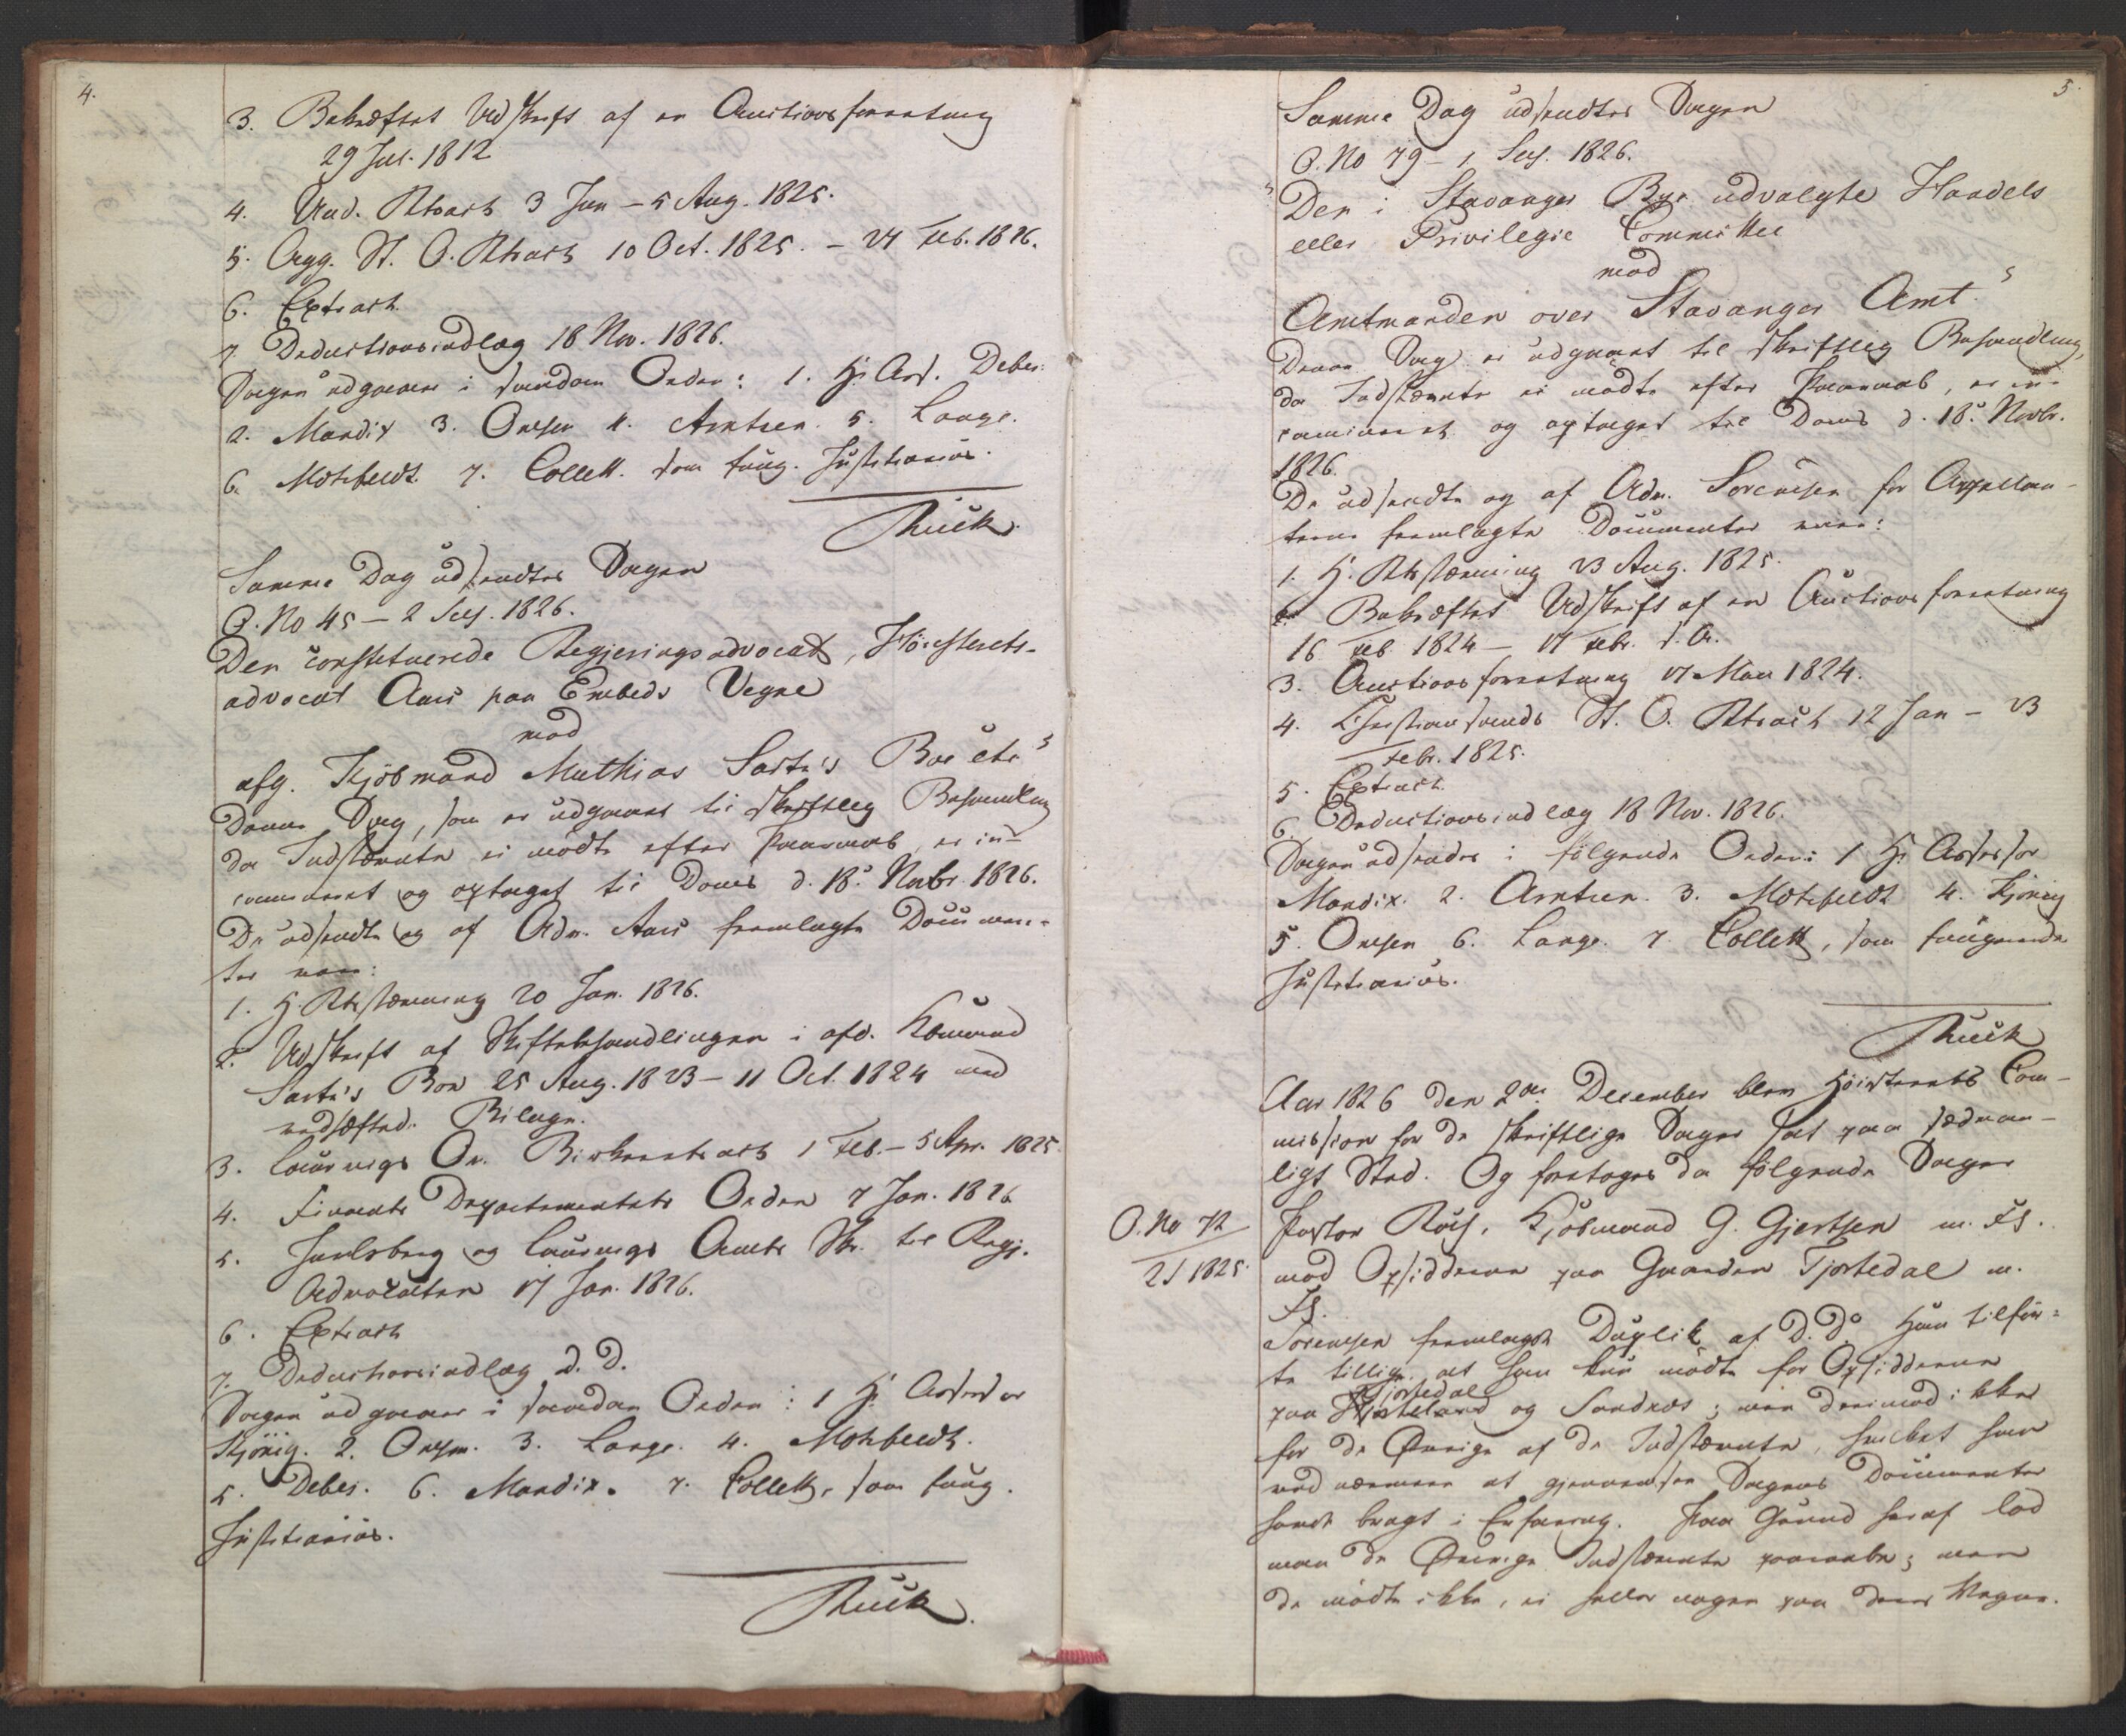 4.
3. Bekræftet Udskrift af en Auctionsforretning
29 Jul. 1812
4. Und. Rtsact 3 Jan – 5 Aug. 1825.
5. Agg. St. O. Rtsact 10 Oct. 1825. – 24 Feb. 1826.
6. Extract.
7. Deductionsindlæg 18 Nov. 1826.
Sagen udgaaer i saadan Orden: 1. Hr Ass. Debes.
2. Mandix 3. Omsen 4. Arntzen. 5. Lange.
6. Motzfeldt. 7. Collett. som fung. Justitiarius.
Ruck.
Samme Dag udsendtes Sagen
O. No 45 – 2 Ses. 1826.
Den constituerede Regjeringsadvocat, Höiesterets-
advocat Aars paa Embeds Vegne
mod
afg. Kjöbmand Mathias Sartz's Boe etc"
Denne Sag, som er udgaaet til skriftlig Behandling
da Indstævnte ei mödte efter Paaraab, er in-
camineret og optaget til Doms d. 18. Novbr. 1826.
De udsendte og af Adv. Aars fremlagte Documen-
ter vare:
1. H. Rtsstævning 20 Jan. 1826.
2. Udskrift af Skiftebehandlingen i afd. Kbmand
Sartz's Boe 25 Aug. 1823 – 11 Oct. 1824 med
vedhæftede Bilage.
3. Laurvigs Ov. Birkeretsact 1 Feb. – 5 Apr. 1825.
4. Finants Departementets Orden 7 Jan. 1826
5. Jarlsberg og Laurvigs Amts Skr. til Regj.
Advocaten 17 Jan. 1826.
6. Extract
7. Deductionsindlæg d. D.
Sagen udgaaer i saadan Orden: 1 Hr Assessor
Kjönig. 2. Omsen. 3. Lange. 4. Motzfeldt.
5. Debes. 6. Mandix. 7. Collett, som fung.
Justitiarius.
Ruck.
5.
Samme Dag udsendtes Sagen
O. No 79 – 1 Ses. 1826.
"Den i Stavanger Bye udvalgte Handels
eller Privilegie Committee
mod
Amtmanden over Stavanger Amt."
Denne Sag er udgaaet til skriftlig Behandling,
da Indstævnte ei mödte efter Paaraab, er in-
camineret og optaget til Doms d. 18. Novbr.
1826.
De udsendte og af Adv. Sörensen for Appellan-
terne fremlagte Documenter vare:
1. H. Rtsstævning 23 Aug. 1825.
2. Bekræftet Udskrift af en Auctionsforretning
16 Feb 1824 – 17 Febr. s. A.
3. Auctionsforretning 17 Mai 1824.
4. Christiansands St. O. Rtsact 12 Jan – 23
Febr. 1825.
5. Extract.
6. Deductionsindlæg 18 Nov. 1826.
Sagen udsendes i fölgende Orden: 1 Hr Assessor
Mandix. 2. Arntzen. 3. Motzfeldt 4. Kjönig
5. Omsen 6. Lange. 7. Collett, som fungerende
Justitiarius.
Ruck
Aar 1826 den 2den December blev Höiesterets Com-
mission for de skriftlige Sager sat paa sædvan-
ligt Sted. Og foretoges da fölgende Sager
O. No 72
2 S 1825.
Pastor , Kjöbmand G. Gjertsen m. Fl.
mod Opsidderne paa Gaarden Tjostedal m.
Fl.
Sörensen fremlagde Duplik af D. Do Han tilför-
te tillige at han kun mödte for Opsidderne
Tjostedal
paa og Sandnæs; men derimod ikke
for de Övrige af de Indstævnte, hvilket han
ved nærmere at gjennemsee Sagens Documenter
havde bragt i Erfaring. Paa Grund heraf lod
man de Övrige Indstævnte paaraabe; men
de mödte ikke, ei heller nogen paa deres Vegne.